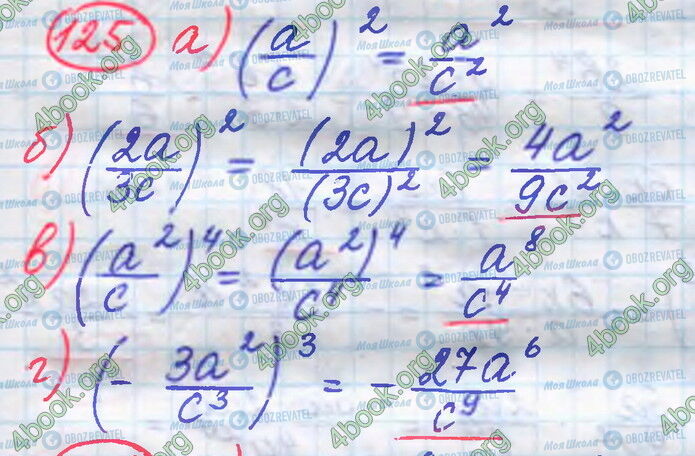 125 а) (a/c)^2 = a^2/c^2
б) (2a/3c)^2 = (2a)^2/(3c)^2 = 4a^2/9c^2
в) (a^2/c)^4 = (a^2)^4/c^4 = a^8/c^4
г) (- 3a^2/c^3)^3 = - 27a^6/c^9
4book.org
Моя Школа OBOZREVATEL